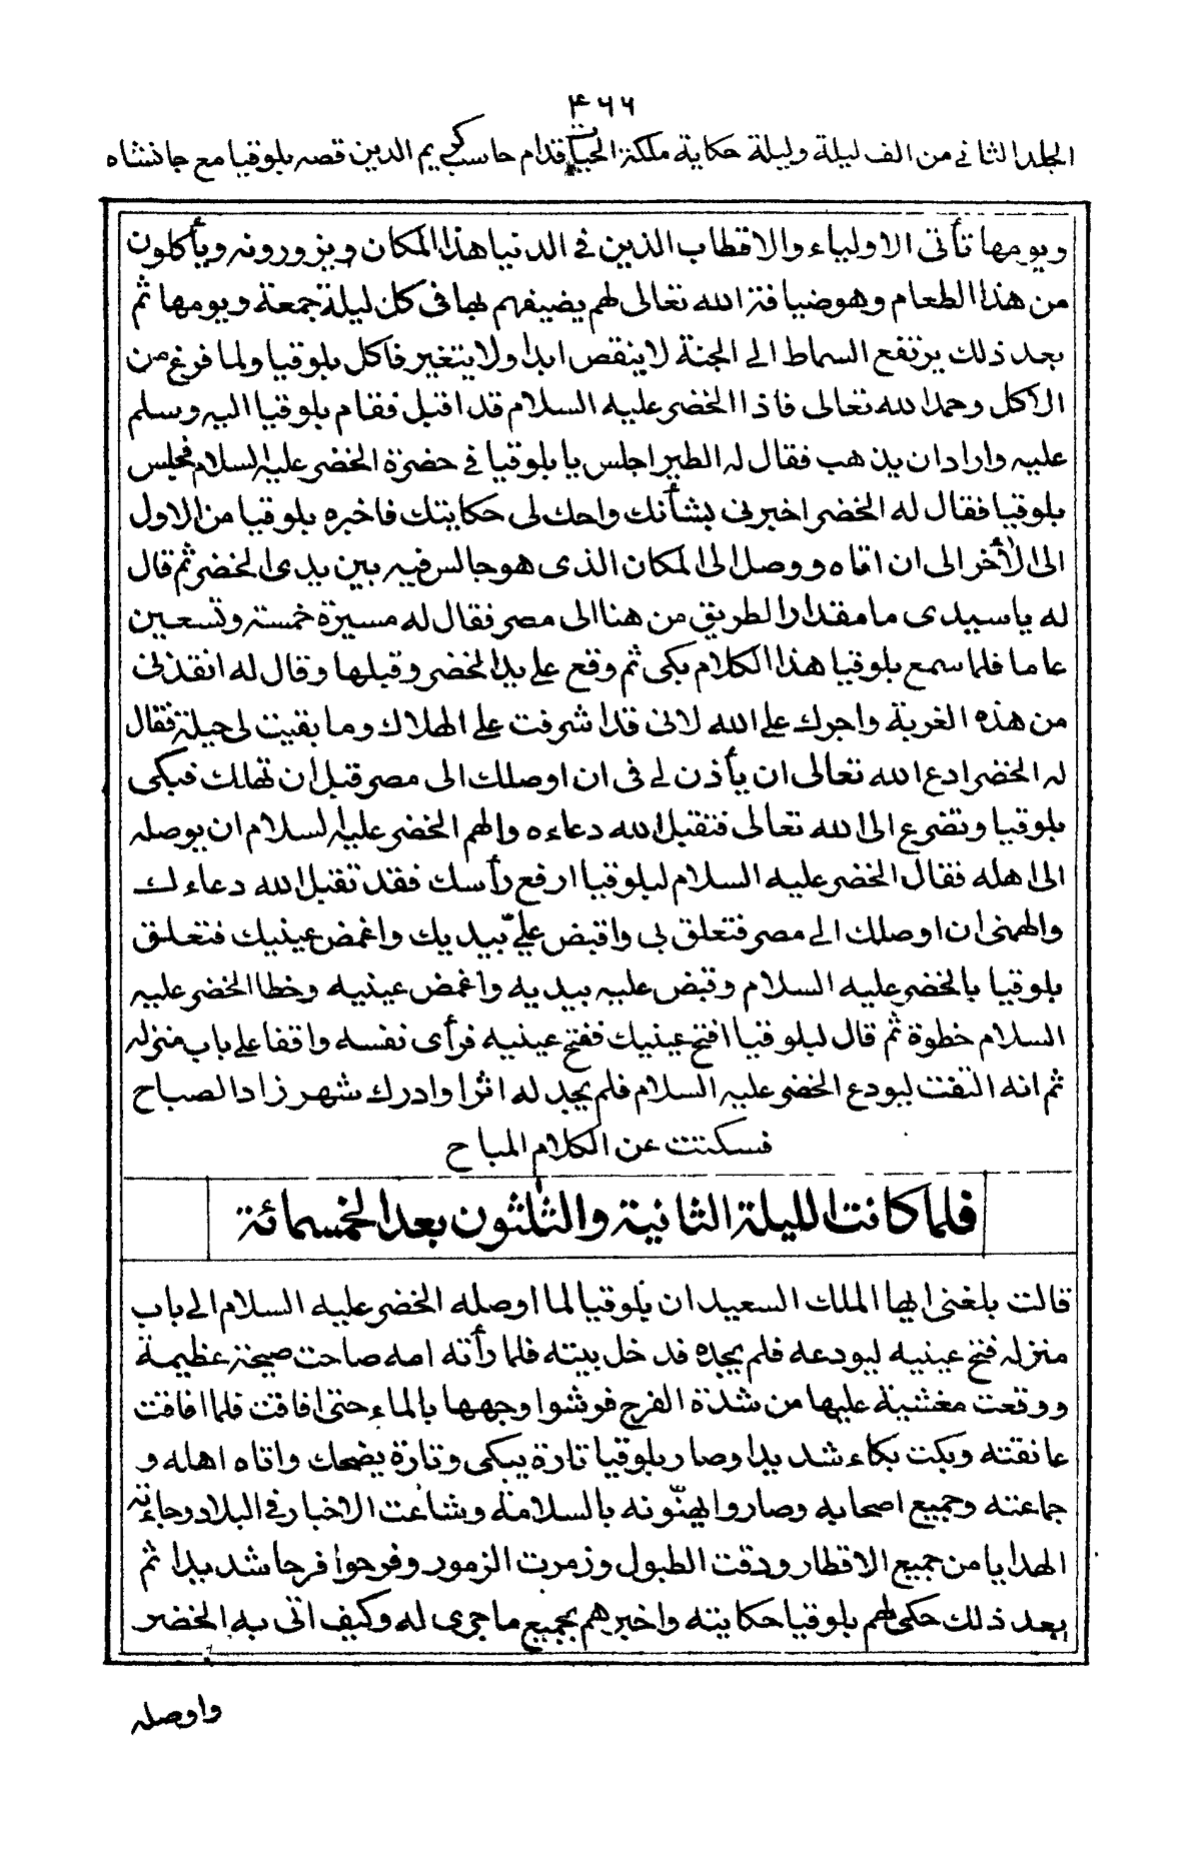 ٤٦٦
الجلد الثانى من الف ليلة وليلة حكاية ملكة الحيات قدام حاسب كريم الدين قصه بلوقيا مع جانشاه
ويومها تأتى الاولياء والاقطاب الذين فى الدنيا هذا المكان ويزورونه ويأكلون
من هذا الطعام وهو ضيافة الله تعالى لهم يضيفهم بها فى كل ليلة جمعة ويومها ثم
بعد ذلك يرتفع السماط الى الجنة لا ينقص ابدا ولا يتغير فاكل بلوقيا ولما فرغ من
الاكل وحمد الله تعالى فاذا الخضر عليه السلام قد اقبل فقام بلوقيا اليه وسلم
عليه واراد ان يذهب فقال له الطير اجلس يا بلوقيا فى حضرة الخضر عليه السلام فجلس
بلوقيا فقال له الخضر اخبرنى بشأنك واحك لى حكايتك فاخبره بلوقيا من الاول
الى الأخر الى ان اتاه ووصل الى المكان الذى هو جالس فيه بين يدى الخضر ثم قال
له يا سيدى ما مقدار الطريق من هنا الى مصر فقال له مسيرة خمسة وتسعين
عاما فلما سمع بلوقيا هذا الكلام بكى ثم وقع على يد الخضر وقبلها وقال له انقذنى
من هذه الغربة واجرك على الله لانى قد اشرفت على الهلاك وما بقيت لى حيلة فقال
له الخضر ادع الله تعالى ان يأذن لى فى ان اوصلك الى مصر قبل ان تهلك فبكى
بلوقيا وتضرع الى الله تعالى فتقبل الله دعاءه والهم الخضر عليه السلام ان يوصله
الى اهله فقال الخضر عليه السلام لبلوقيا ارفع رأسك فقد تقبل الله دعاءك
والهمنى ان اوصلك الى مصر فتعلق بى واقبض علىّ بيديك واغمض عينيك فتعلق
بلوقيا بالخضر عليه السلام وقبض عليه بيديه واغمض عينيه وخطا الخضر عليه
السلام خطوة ثم قال لبلوقيا افتح عينيك ففتح عينيه فرأى نفسه واقفا على باب منزله
ثم انه التفت ليودع الخضر عليه السلام فلم يجد له اثرا وادرك شهر زاد الصباح
فسكتت عن الكلام المباح
فلما كانت الليلة الثانية والثلثون بعد الخمسمائة
قالت بلغنى ايها الملك السعيد ان بلوقيا لما اوصله الخضر عليه السلام الى باب
منزله فتح عينيه ليودعه فلم يجده فدخل بيته فلما رأته امه صاحت صيحة عظيمة
ووقعت مغشية عليها من شدة الفرح فرشوا وجهها بالماء حتى افاقت فلما افاقت
عانقته وبكت بكاء شديدا وصار بلوقيا تارة يبكى وتارة يضحك واتاه اهله و
جماعته وجميع اصحابه وصاروا يهنّونه بالسلامة وشاعت الاخبار فى البلاد وجاءته
الهدايا من جميع الاقطار ودقت الطبول وزمرت الزمور وفرحوا فرحا شديدا ثم
بعد ذلك حكى لهم بلوقيا حكايته واخبرهم بجميع ما جرى له وكيف اتى به الخضر
واوصله